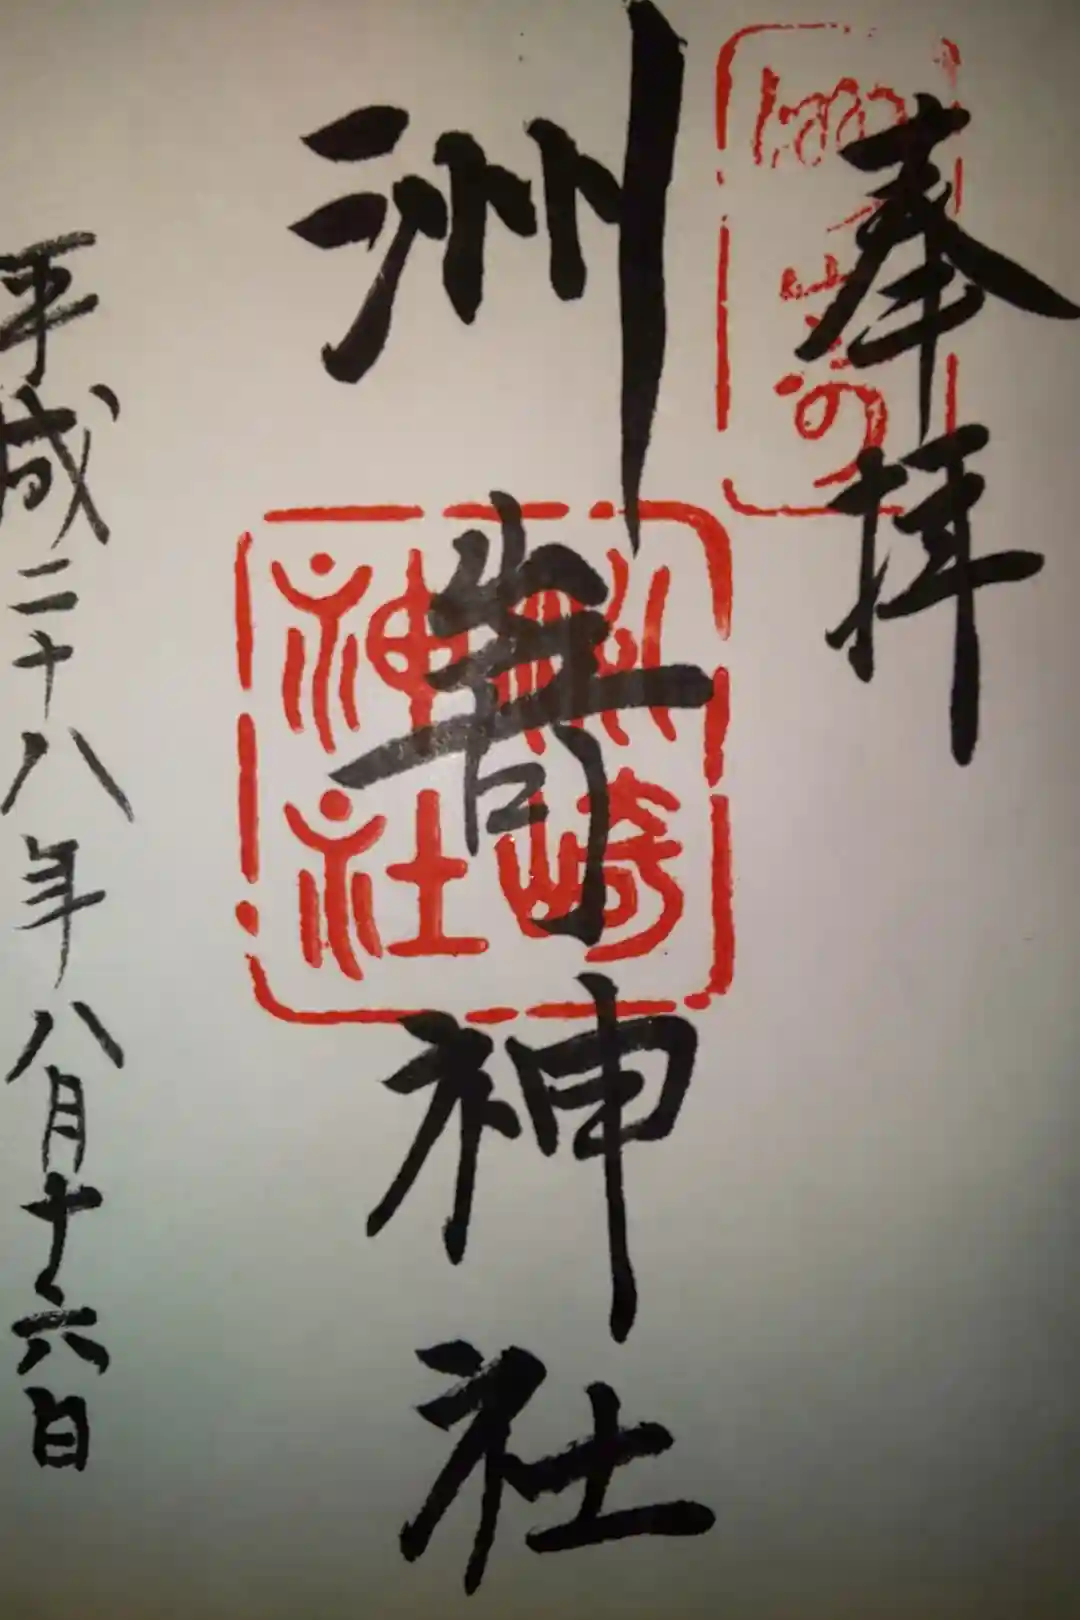 奉拝
洲㟢神社
洲崎
神社
平成二十八年八月十六日